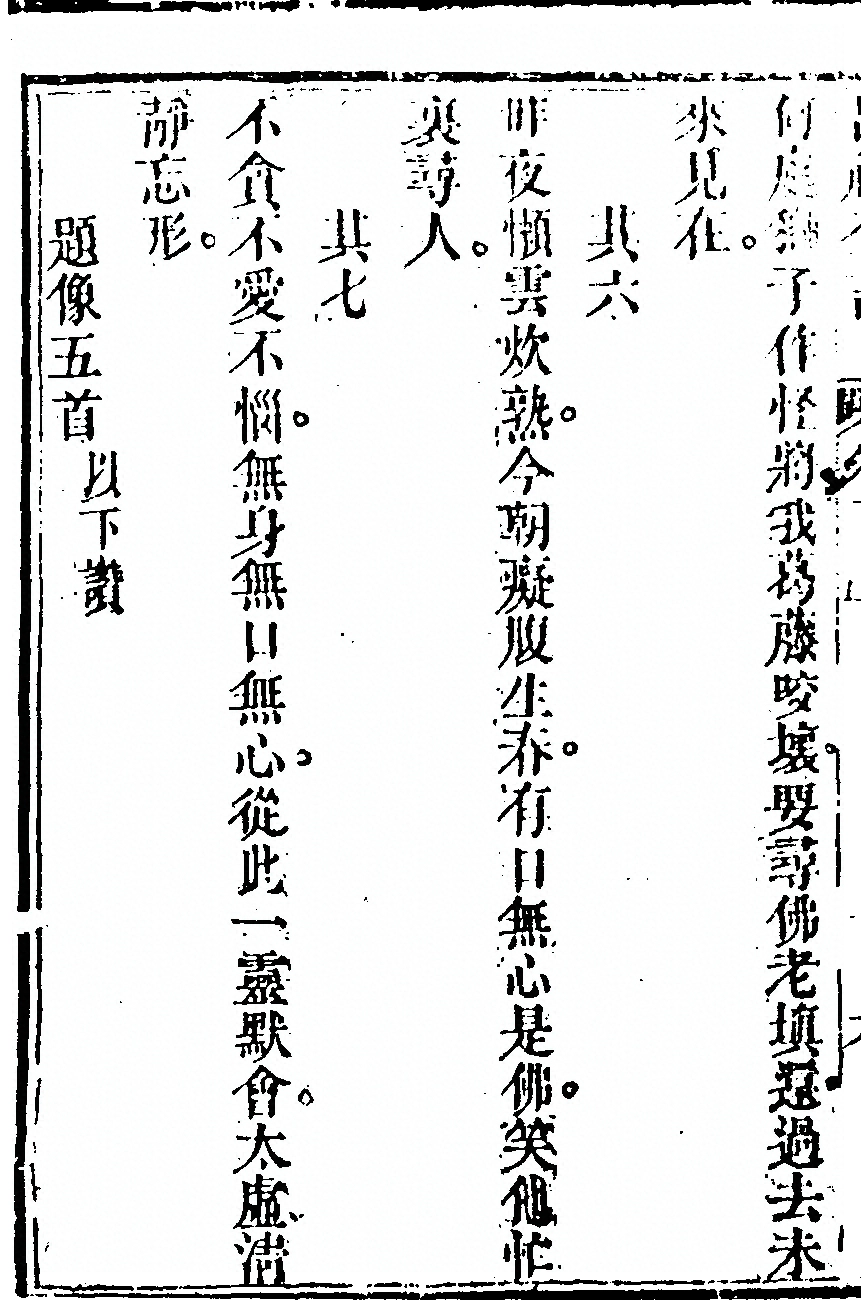 何處獅子作怪將我葛藤咬壞。要尋佛老填還。過去未
來見在。
其六
昨夜懶雲炊熟。今朝癡腹生春。有口無心是佛。笑他忙
裏尋人。
其七
不貪不愛不惱。無身無口無心。從此一靈默會。太虛清
靜忘形。
題像五首 以下讚